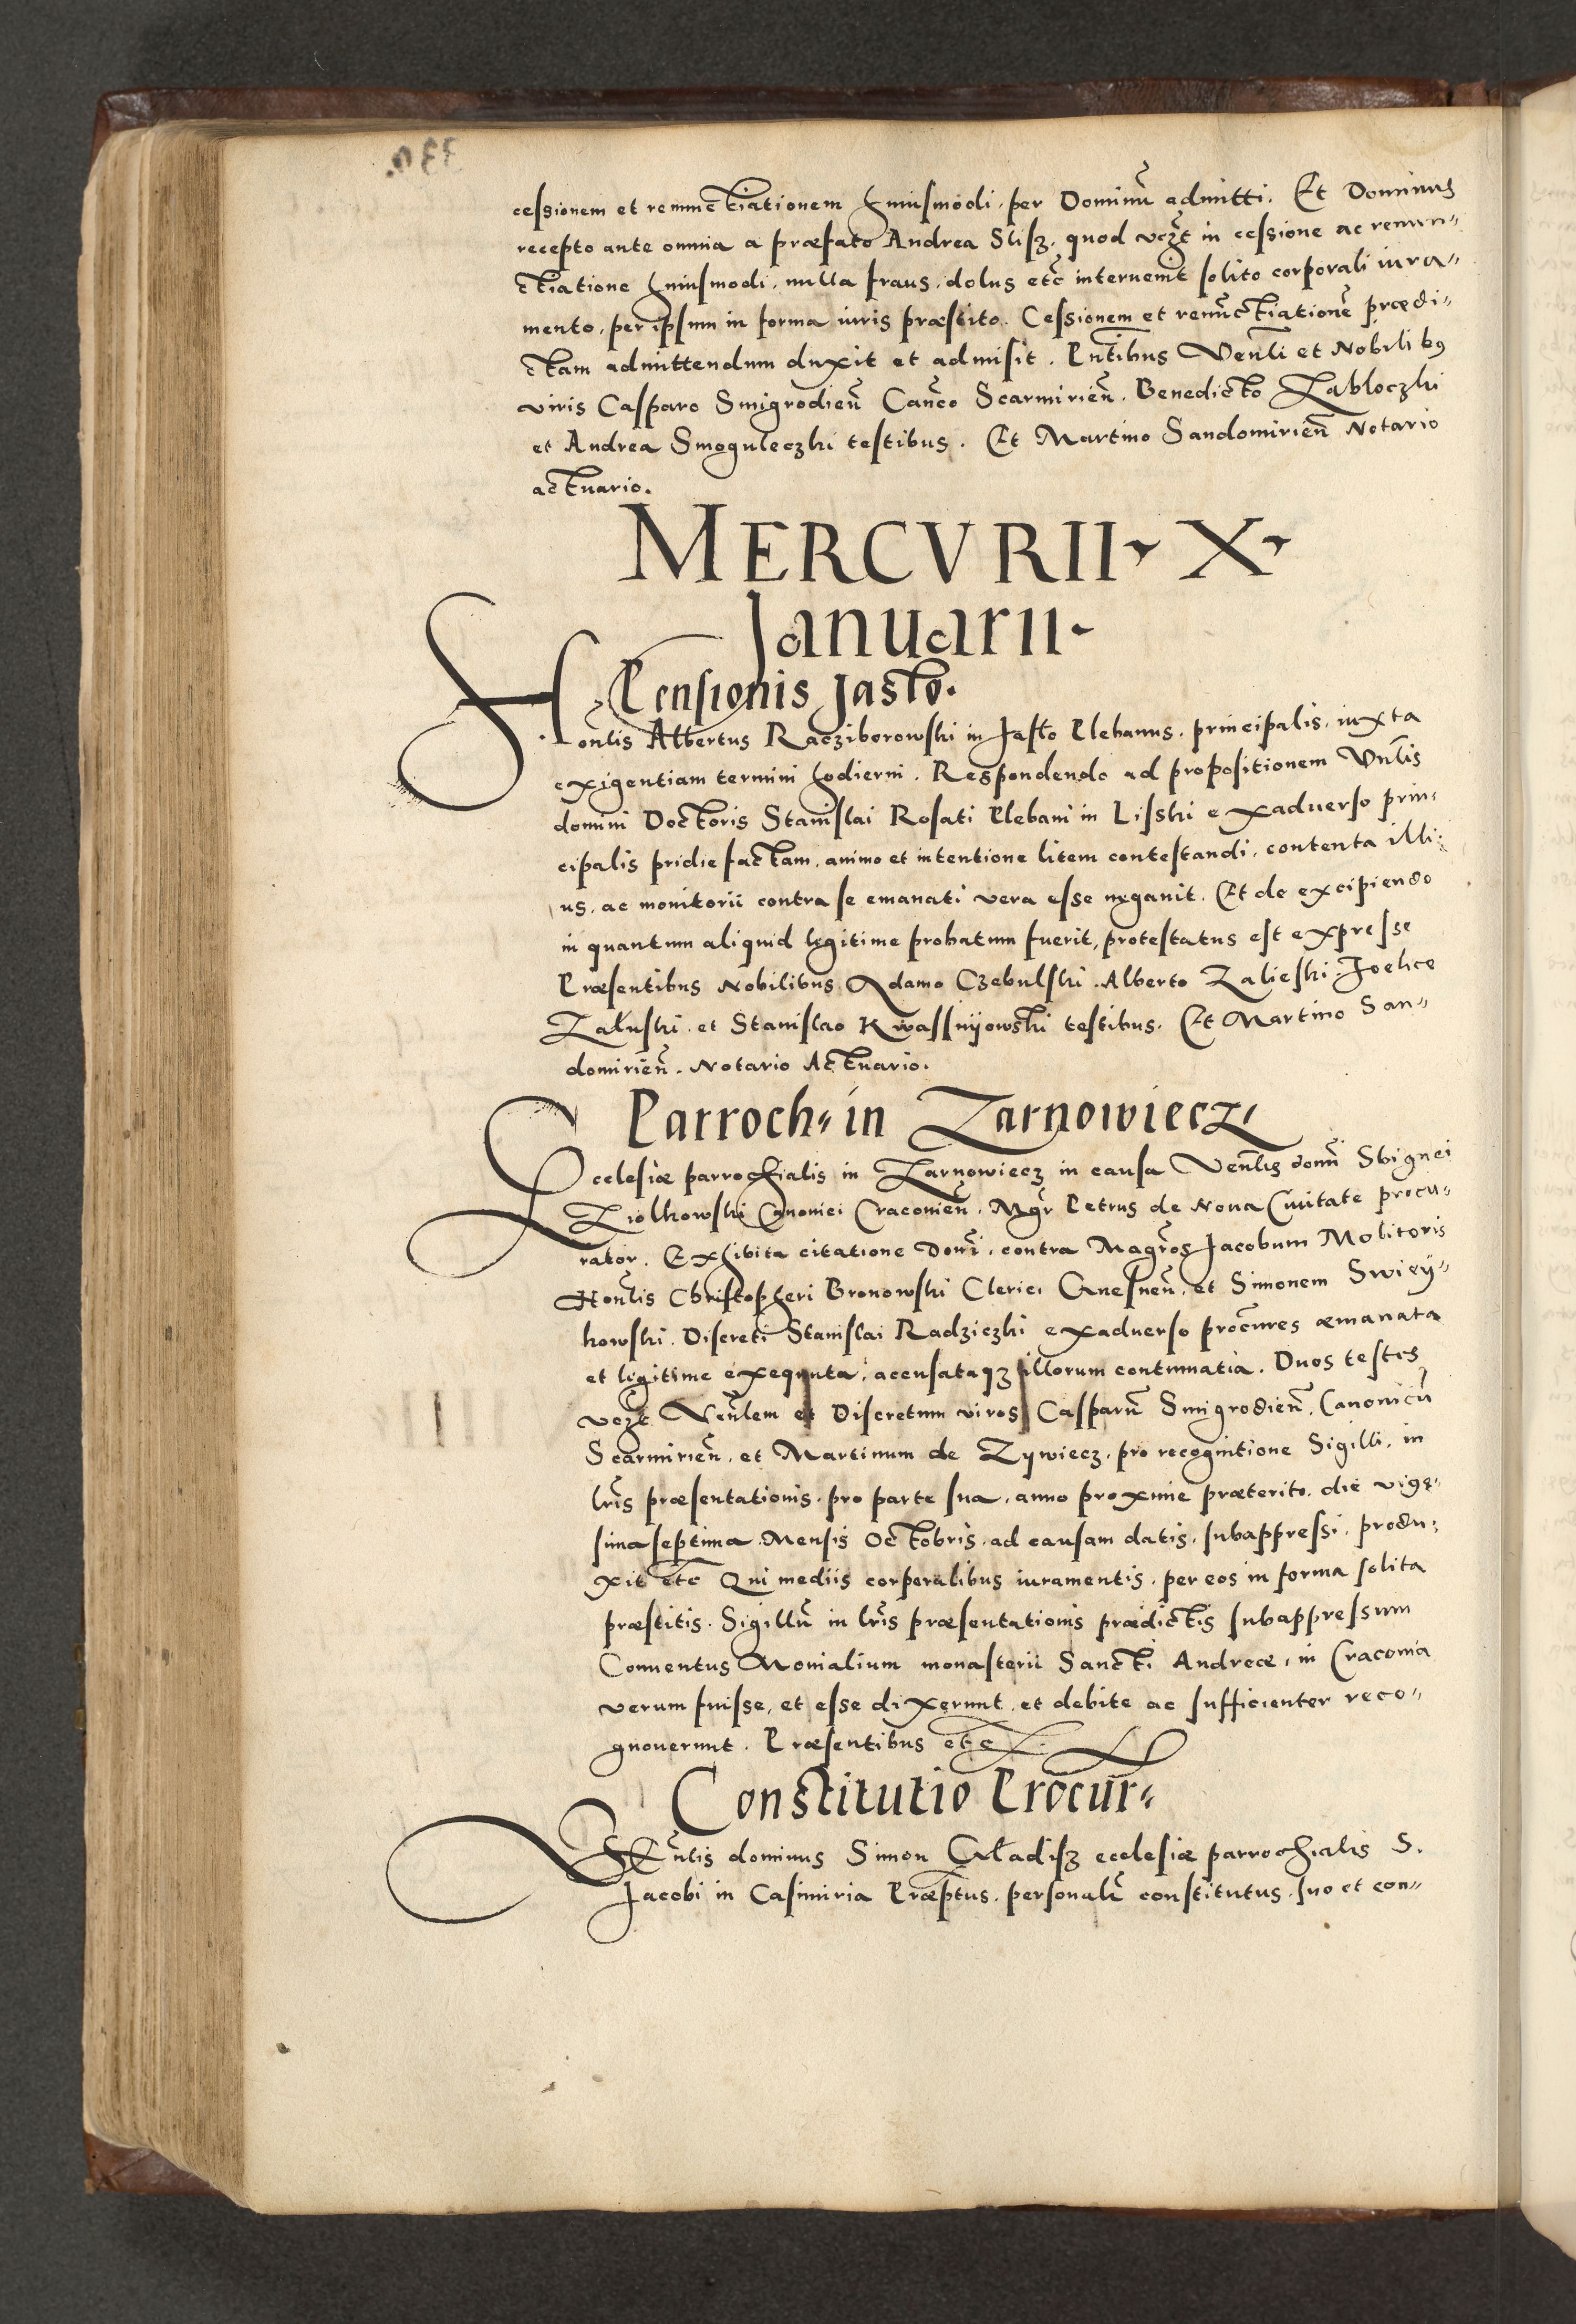 cessionem et renunctiationem huiusmodi, per Dominū admitti. Et Dominus
recepto ante omnia a præfato Andrea Slisz, quod vczt in cessione ac renun„
ctiatione huiusmodi, nulla fraus, dolus etc̄ interuenit solito corporali iura„
mento, per ipsum in forma iuris præstito. Cessionem et renūctiationē prædi„
ctam admittendum duxit et admisit. Pn̄tibus Ven̄li et Nobilibꝰ
viris Casparo Smigrodien̄ Can̄co Scarmirien̄. Benedicto Zabloczki
et Andrea Smoguleczki testibus. Et Martino Sandomirien̄ Notario
actuario.
MERCVRII X
Januarii
Pensionis Jaslo.
Hon̄lis Albertus Racziborowski in Jaslo Plebanus, principalis, iuxta
exigentiam termini hodierni. Respondendo ad propositionem Vn̄lis
domini Doctoris Stanislai Rosati Plebani in Lisski exaduerso prin„
cipalis pridie factam, animo et intentione litem contestandi, contenta illi„
us, ac monitorii contra se emanati vera esse negauit. Et de excipiendo
in quantum aliquid legitime probatum fuerit, protestatus est expresse
Præsentibus Nobilibus Adamo Czebulski. Alberto Zalieski
Zaluski et Stanislao Kwassnÿowski testibus. Et Martino San„
domirien̄. Notario Actuario.
Parroch„ in Zarnowiecz
Ecclesiæ parrochialis in Zarnowiecz in causa Ven̄lis domī Sbignei
Ziolkowski Canonici Cracouien̄. Mgr̄ Petrus de Noua Ciuitate procu„
rator. Exhibita citatione Domī, contra Magr̄os Jacobum Molitoris
Hon̄lis Christopheri Bronowski Clerici Gnesnen̄. et Simonem Swieÿ„
kowski. Discreti Stanislai Radziczki exaduerso procūres æmanata
et legitime exequuta, accusataqꝫ illorum contumatia. Duos testes
vczt Ven̄lem et Discretum viros Casparū Smigrodien̄, Canonicū
Scarmirien̄, et Martinum de Zywiecz, pro recognitione Sigilli, in
lr̄is præsentationis, pro parte sua, anno proxime præterito, die vige„
sima septima Mensis Octobris, ad causam datis, subappressi, produ„
xit etc̄ Qui mediis corporalibus iuramentis, per eos in forma solita
præstitis. Sigillū in lr̄is præsentationis prædictis subappressum
Conuentus Monialium monasterii Sancti Andreæ, in Cracouia
verum fuisse, et esse dixerunt, et debite ac sufficienter reco„
gnouerunt. Præsentibus etc
Constitutio Procur„
Vn̄lis dominus Simon Gladisz ecclesiæ parrochialis S.
Jacobi in Casimiria Præptus, personalr̄ constitutus, suo et con„